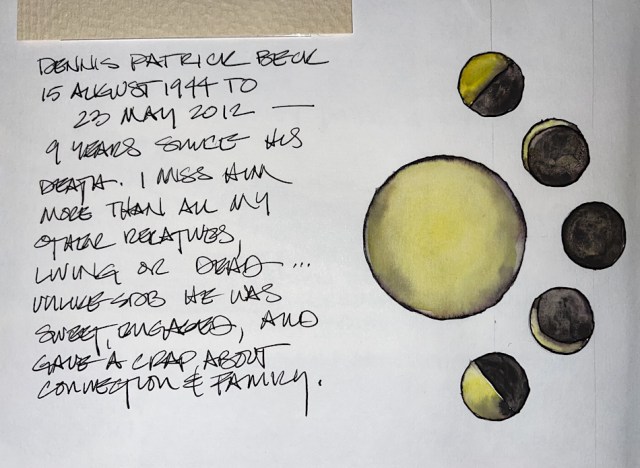 DENNIS PATRICK BECK
15 AUGUST 1944 TO
23 MAY 2012 —
9 YEARS SINCE HIS
DEATH. I MISS HIM
MORE THAN ALL MY
OTHER RELATIVES,
LIVING OR DEAD ...
UNLIKE HE WAS
SWEET, ENGAGED, AND
GAVE A CRAP ABOUT
CONNECTION & FAMILY.